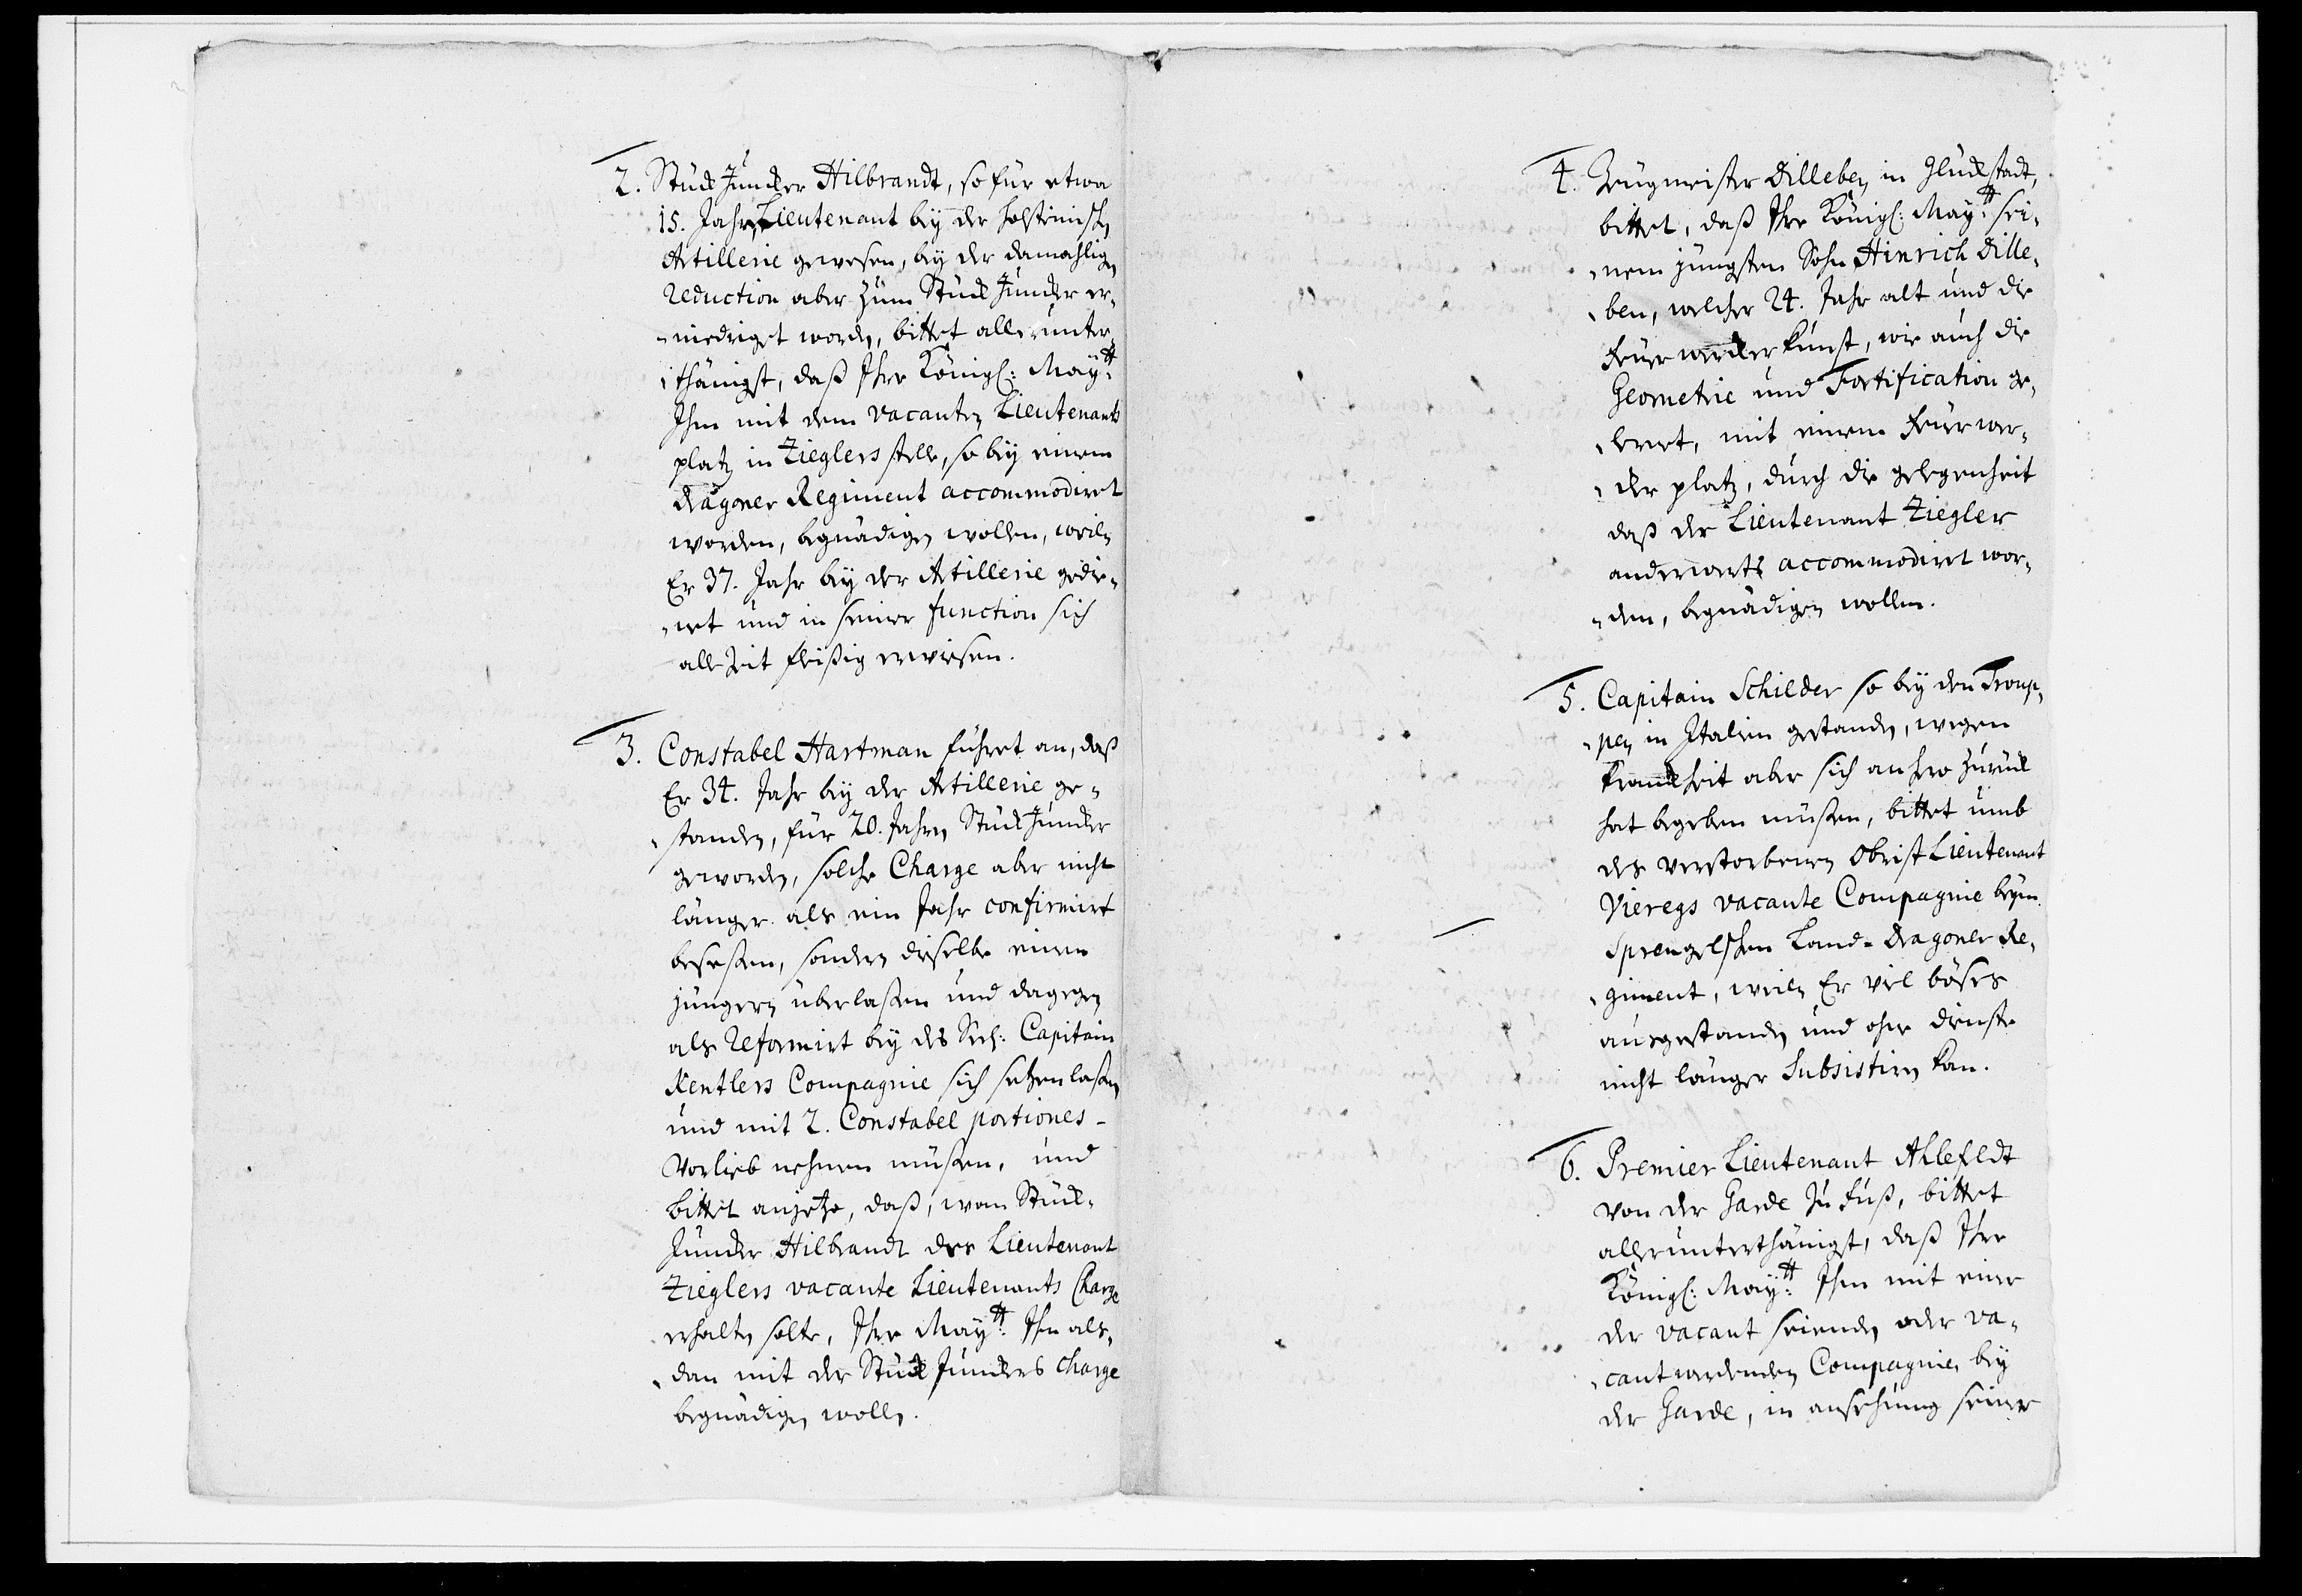 2. Stück Juncker Hilbrandt, so für etwa
15. Jahren Lieutenant beÿ der holsteinischen
Artillerie gewesen, beÿ der damahligen
reduction aber zum Stück Juncker er-
-niedriget worden, bittet allerunter-
-thänigst, daß Ihre Königl: Maÿtt:
Ihm mit dem vacanten Lieutenants
platz in Zieglers stelle, so beÿ einem
Dragoner Regiment accommodiret
worden, begnädigen wollen, weiln
Er 37. Jahr beÿ der Artillerie gedie-
-net und in seiner function sich
alle Zeit fleißig erwiesen.
3. Constabel Hartman führet an, daß
Er 34. Jahr beÿ der Artillerie ge-
-standen, für 20. Jahren Stück Juncker
geworden, solche Charge aber nicht
länger als ein Jahr confirmirt
beseßen, sondern dieselbe einem
jüngern überlaßen und dagegen
als reformirt beÿ des Seel: Capitain
Kentlers Compagnie sich setzen laßen
und mit 2. Constabel portiones
Vorlieb nehmen müßen, und
bittet anjetzo, daß, wan Stück-
Juncker Hilbrandt des Lieutenant
Zieglers vacante Lieutenants Charge
erhalten solte, Ihre Maÿtt: Ihn als-
-dan mit der Stück Junckers Charge
begnädigen wollen.
4. Zeugmeister Dilleben in Glückstadt,
bittet, daß Ihre Königl: Maÿtt: sei-
-nem jüngsten Sohn Hinrich Dille-
-ben, welcher 24. Jahr alt und die
Feuerwercker kunst, wie auch die
Geometrie und Fortification ge-
-lernet, mit einem Feuerwer-
-cker platz, durch die gelegenheit
daß der Lieutenant Ziegler
anderwerts accommodiret wor-
-den, begnädigen wollen.
5. Capitain Schilder so beÿ den Troup-
-pen in Italien gestanden, wegen
kranckheit aber sich anhero zurück
hat begeben müßen, bittet umb
des verstorbenen Obrist Lieutenant
Vieregs vacante Compagnie beÿm
Sprengelschen Land-Dragoner Re-
-giment, weiln Er viel böses
ausgestanden und ohne dienste
nicht länger Subsistiren kan.
6. Premier Lieutenant Ahlefeldt
von der Garde zu Fuß, bittet
allerunterthänigst, daß Ihre
Königl: Maÿtt: Ihm mit einer
der vacant seienden oder va-
-cant werdenden Compagnie, beÿ
der Garde, in ansehung seiner